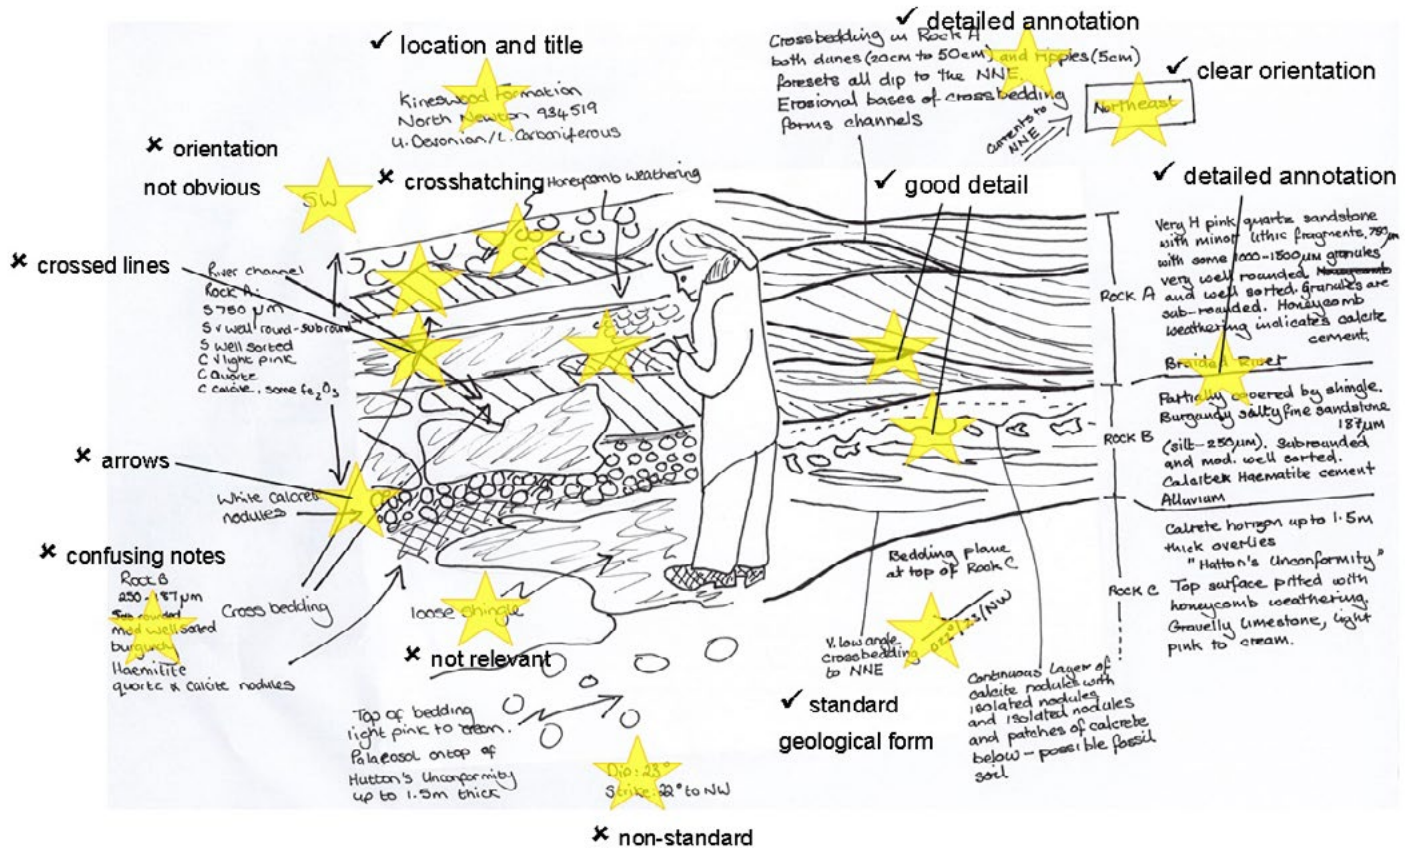 ✓ location and title
Kineswood Formation
North Newton 934519
U. Devonian/L. Carboniferous
✓ detailed annotation
Crossbedding in Rock A
both dunes (20cm to 50cm) and ripples (5cm)
foresets all dip to the NNE.
Erosional bases of crossbedding
forms channels
currents to
NNE
✓ clear orientation
Northeast
✗ orientation
not obvious
SW
✗ crosshatching
Honeycomb weathering
✓ good detail
✓ detailed annotation
✗ crossed lines
River channel
Rock A:
S 750 μm
S v well round-subround
S well sorted
C v light pink
C Quartz
C calcite, some Fe2O3
✗ arrows
White calcrete
nodules
✗ confusing notes
Rock B
250-187μm
Sub rounded
mod well sorted
burgundy
Haemitite
quartz & calcite nodules
Cross bedding
loose shingle
✗ not relevant
Top of bedding
light pink to cream.
Palaeosol on top of
Hutton's Unconformity
up to 1.5m thick
Dip: 23°
Strike: 22° to NW
✗ non-standard
Rock A
Very H pink quartz sandstone
with minor lithic fragments, 750μm
with some 1000-1500μm granules
very well rounded
and well sorted. Granules are
sub-rounded. Honeycomb
weathering indicates calcite
cement.
Braided River
Rock B
Partially covered by shingle.
Burgundy salty fine sandstone
187μm
(silt-250μm). Subrounded
and mod. well sorted.
Calcite & Haematite cement
Alluvium
Rock C
Calcrete horizon up to 1.5m
thick overlies
"Hutton's Unconformity"
Top surface pitted with
honeycomb weathering.
Gravelly limestone, light
pink to cream.
Bedding plane
at top of Rock C
022°/23/NW
V. low angle
crossbedding
to NNE
✓ standard
geological form
Continuous layer of
calcite nodules with
isolated nodules
and isolated nodules
and patches of calcrete
below - possible fossil
soil